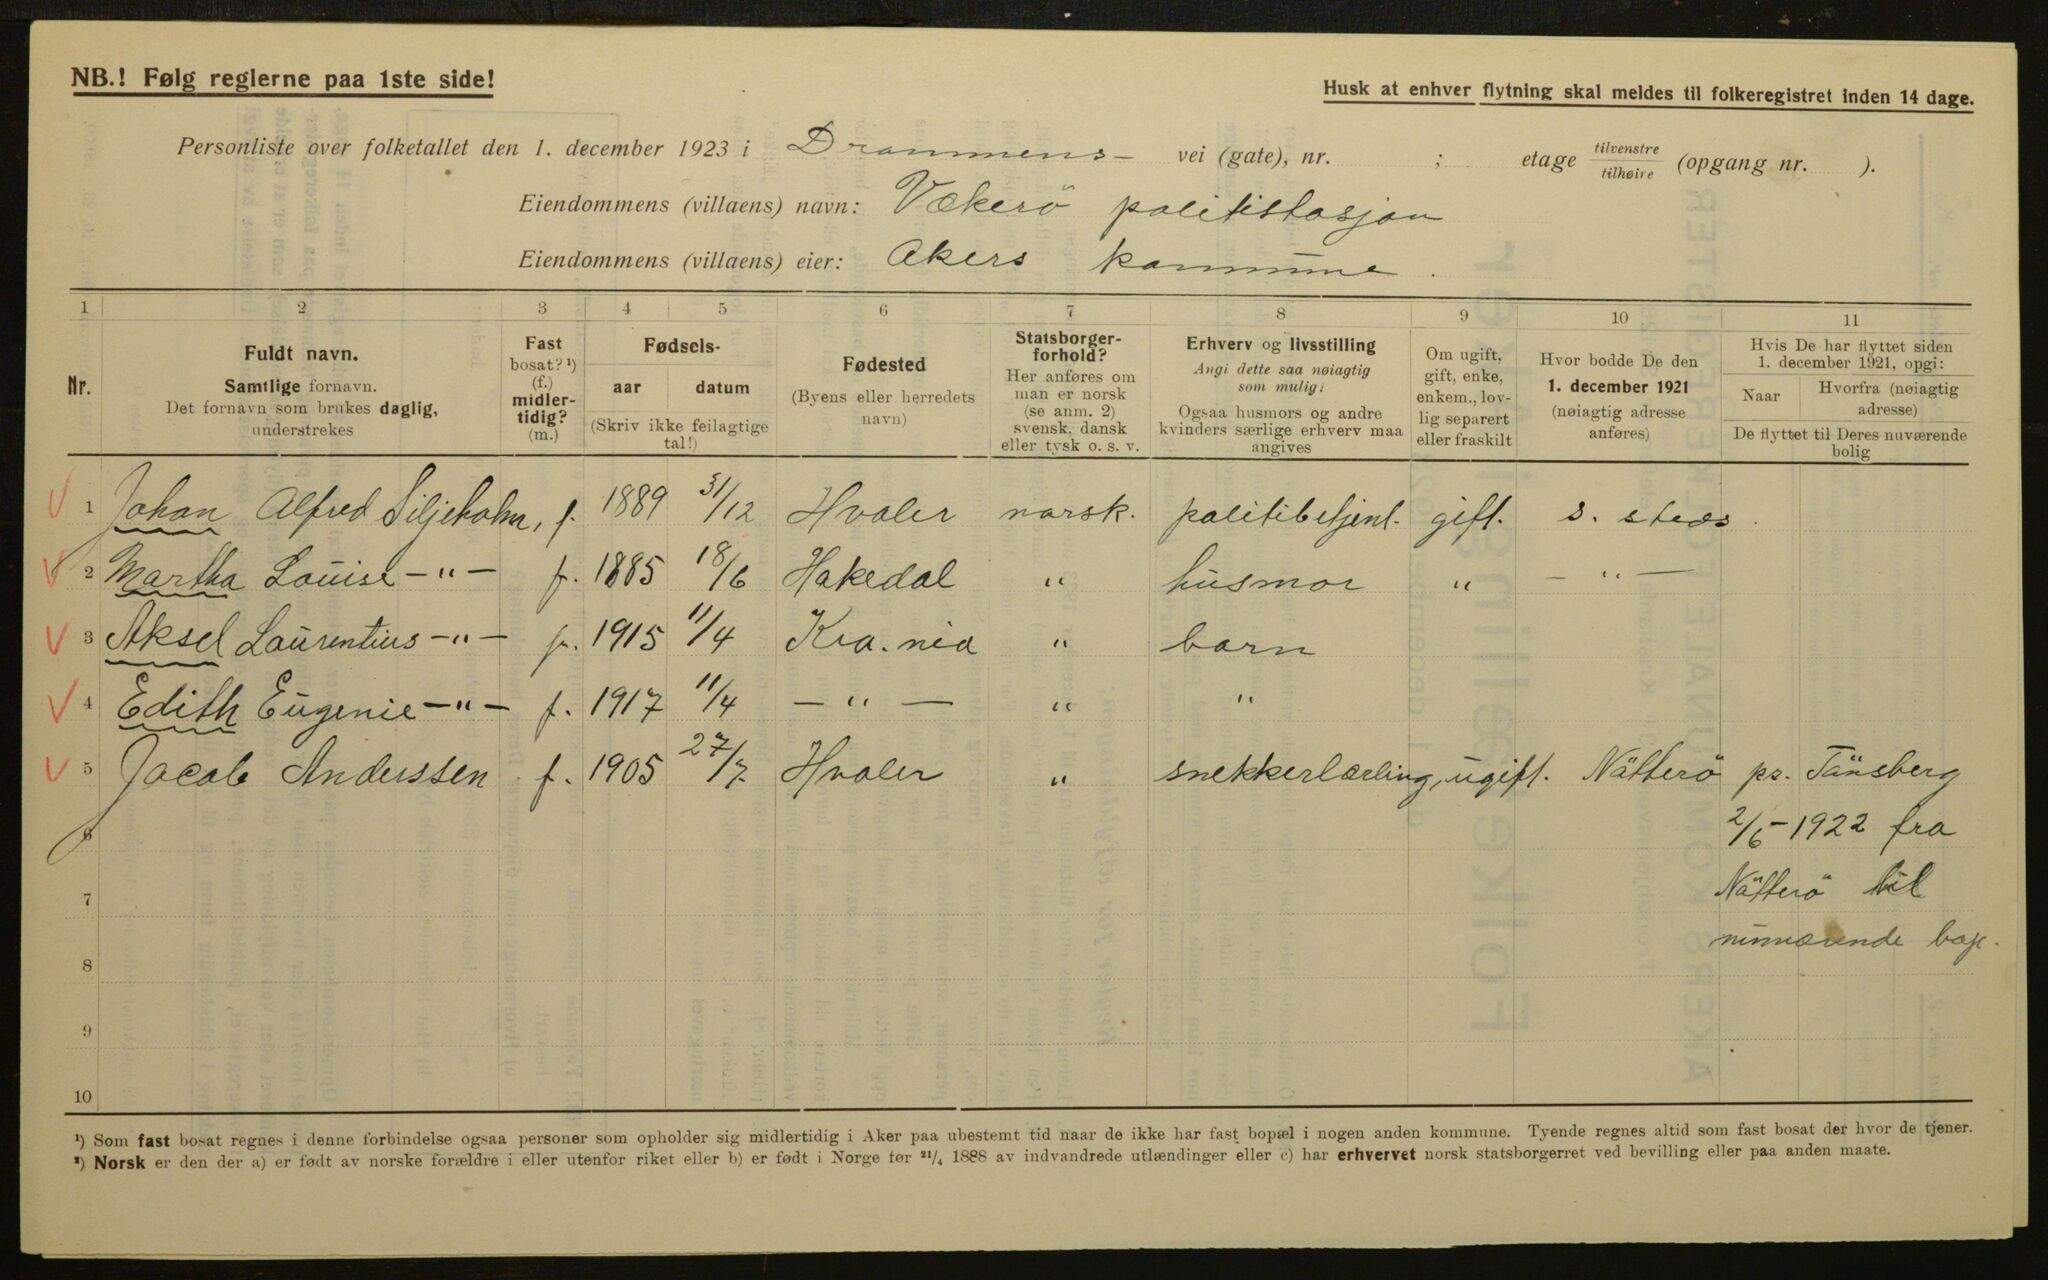 NB.! Følg reglerne paa 1ste side!
Husk at enhver flytning skal meldes til folkeregistret inden 14 dage.
Personliste over folketallet den 1. december 1923 i Drammens- vei (gate), nr. ; etage tilvenstre/tilhøire (opgang nr. ).
Eiendommens (villaens) navn: Vækerö politistasjon
Eiendommens (villaens) eier: Akers kommune.
1 2 3 4 5 6 7 8 9 10 11
Nr.
Fuldt navn.
Samtlige fornavn.
Det fornavn som brukes daglig,
understrekes
Fast
bosat? ¹)
(f.)
midler-
tidig?
(m.)
Fødsels-
aar datum
(Skriv ikke feilagtige
tal!)
Fødested
(Byens eller herredets
navn)
Statsborger-
forhold?
Her anføres om
man er norsk
(se anm. 2)
svensk, dansk
eller tysk o. s. v.
Erhverv og livsstilling
Angi dette saa nøiagtig
som mulig:
Ogsaa husmors og andre
kvinders særlige erhverv maa
angives
Om ugift,
gift, enke,
enkem., lov-
lig separert
eller fraskilt
Hvor bodde De den
1. december 1921
(nøiagtig adresse
anføres)
Hvis De har flyttet siden
1. december 1921, opgi:
Naar Hvorfra (nøiagtig
adresse)
De flyttet til Deres nuværende
bolig
1 Johan Alfred Siljeholm, f. 1889 31/12 Hvaler norsk. politibetjent. gift. s. steds.
2 Martha Louise -"- f. 1885 18/6 Hakedal " husmor " -"-
3 Aksel Laurentius -"- f. 1915 11/4 Kra.nia " barn
4 Edith Eugenie -"- f. 1917 11/4 -"- " "
5 Jacob Anderssen f. 1905 27/7 Hvaler " snekkerlærling, ugift. Nötterö pr. Tönsberg
6 2/5-1922 fra
7 Nötterö til
nuværende bop.
8
9
10
¹) Som fast bosat regnes i denne forbindelse ogsaa personer som opholder sig midlertidig i Aker paa ubestemt tid naar de ikke har fast bopæl i nogen anden kommune. Tyende regnes altid som fast bosat der hvor de tjener.
²) Norsk er den der a) er født av norske forældre i eller utenfor riket eller b) er født i Norge før 21/4 1888 av indvandrede utlændinger eller c) har erhvervet norsk statsborgerret ved bevilling eller paa anden maate.